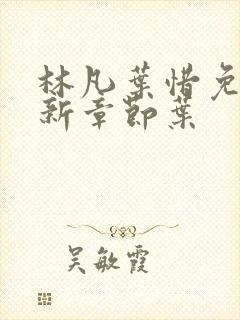 林凡葉惜免
新章節葉
吴敏霞